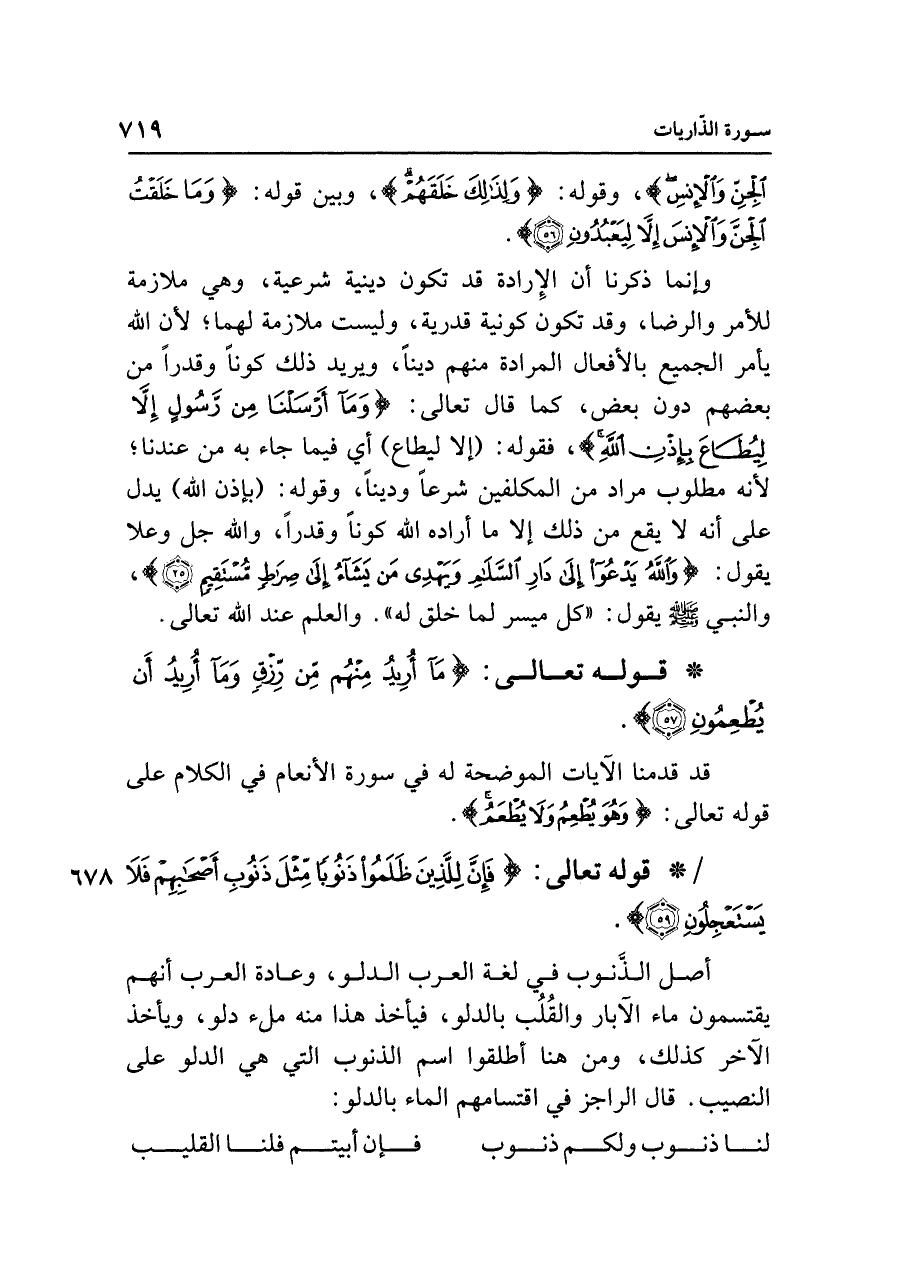 سورة الذّاريات ٧١٩
ٱلْجِنِّ وَٱلْإِنسِۖ﴾، وقوله: ﴿وَلِذَٰلِكَ خَلَقَهُمْۗ﴾، وبين قوله: ﴿وَمَا خَلَقْتُ
ٱلْجِنَّ وَٱلْإِنسَ إِلَّا لِيَعْبُدُونِ ٥٦﴾.
وإنما ذكرنا أن الإِرادة قد تكون دينية شرعية، وهي ملازمة
للأمر والرضا، وقد تكون كونية قدرية، وليست ملازمة لهما؛ لأن الله
يأمر الجميع بالأفعال المرادة منهم ديناً، ويريد ذلك كوناً وقدراً من
بعضهم دون بعض، كما قال تعالى: ﴿وَمَآ أَرْسَلْنَا مِن رَّسُولٍ إِلَّا
لِيُطَاعَ بِإِذْنِ ٱللَّهِۚ﴾، فقوله: (إلا ليطاع) أي فيما جاء به من عندنا؛
لأنه مطلوب مراد من المكلفين شرعاً وديناً، وقوله: (بإذن الله) يدل
على أنه لا يقع من ذلك إلا ما أراده الله كوناً وقدراً، والله جل وعلا
يقول: ﴿وَٱللَّهُ يَدْعُوٓاْ إِلَىٰ دَارِ ٱلسَّلَٰمِ وَيَهْدِى مَن يَشَآءُ إِلَىٰ صِرَٰطٍ مُّسْتَقِيمٍ ٢٥﴾،
والنبي ﷺ يقول: «كل ميسر لما خلق له». والعلم عند الله تعالى.
* قوله تعالى: ﴿مَآ أُرِيدُ مِنْهُم مِّن رِّزْقٍ وَمَآ أُرِيدُ أَن
يُطْعِمُونِ ٥٧﴾.
قد قدمنا الآيات الموضحة له في سورة الأنعام في الكلام على
قوله تعالى: ﴿وَهُوَ يُطْعِمُ وَلَا يُطْعَمُۗ﴾.
/ * قوله تعالى: ﴿فَإِنَّ لِلَّذِينَ ظَلَمُواْ ذَنُوبًا مِّثْلَ ذَنُوبِ أَصْحَٰبِهِمْ فَلَا ٦٧٨
يَسْتَعْجِلُونِ ٥٩﴾.
أصل الذَّنوب في لغة العرب الدلو، وعادة العرب أنهم
يقتسمون ماء الآبار والقُلُب بالدلو، فيأخذ هذا منه ملء دلو، ويأخذ
الآخر كذلك، ومن هنا أطلقوا اسم الذنوب التي هي الدلو على
النصيب. قال الراجز في اقتسامهم الماء بالدلو:
لنا ذنوب ولكم ذنوب فإن أبيتم فلنا القليب